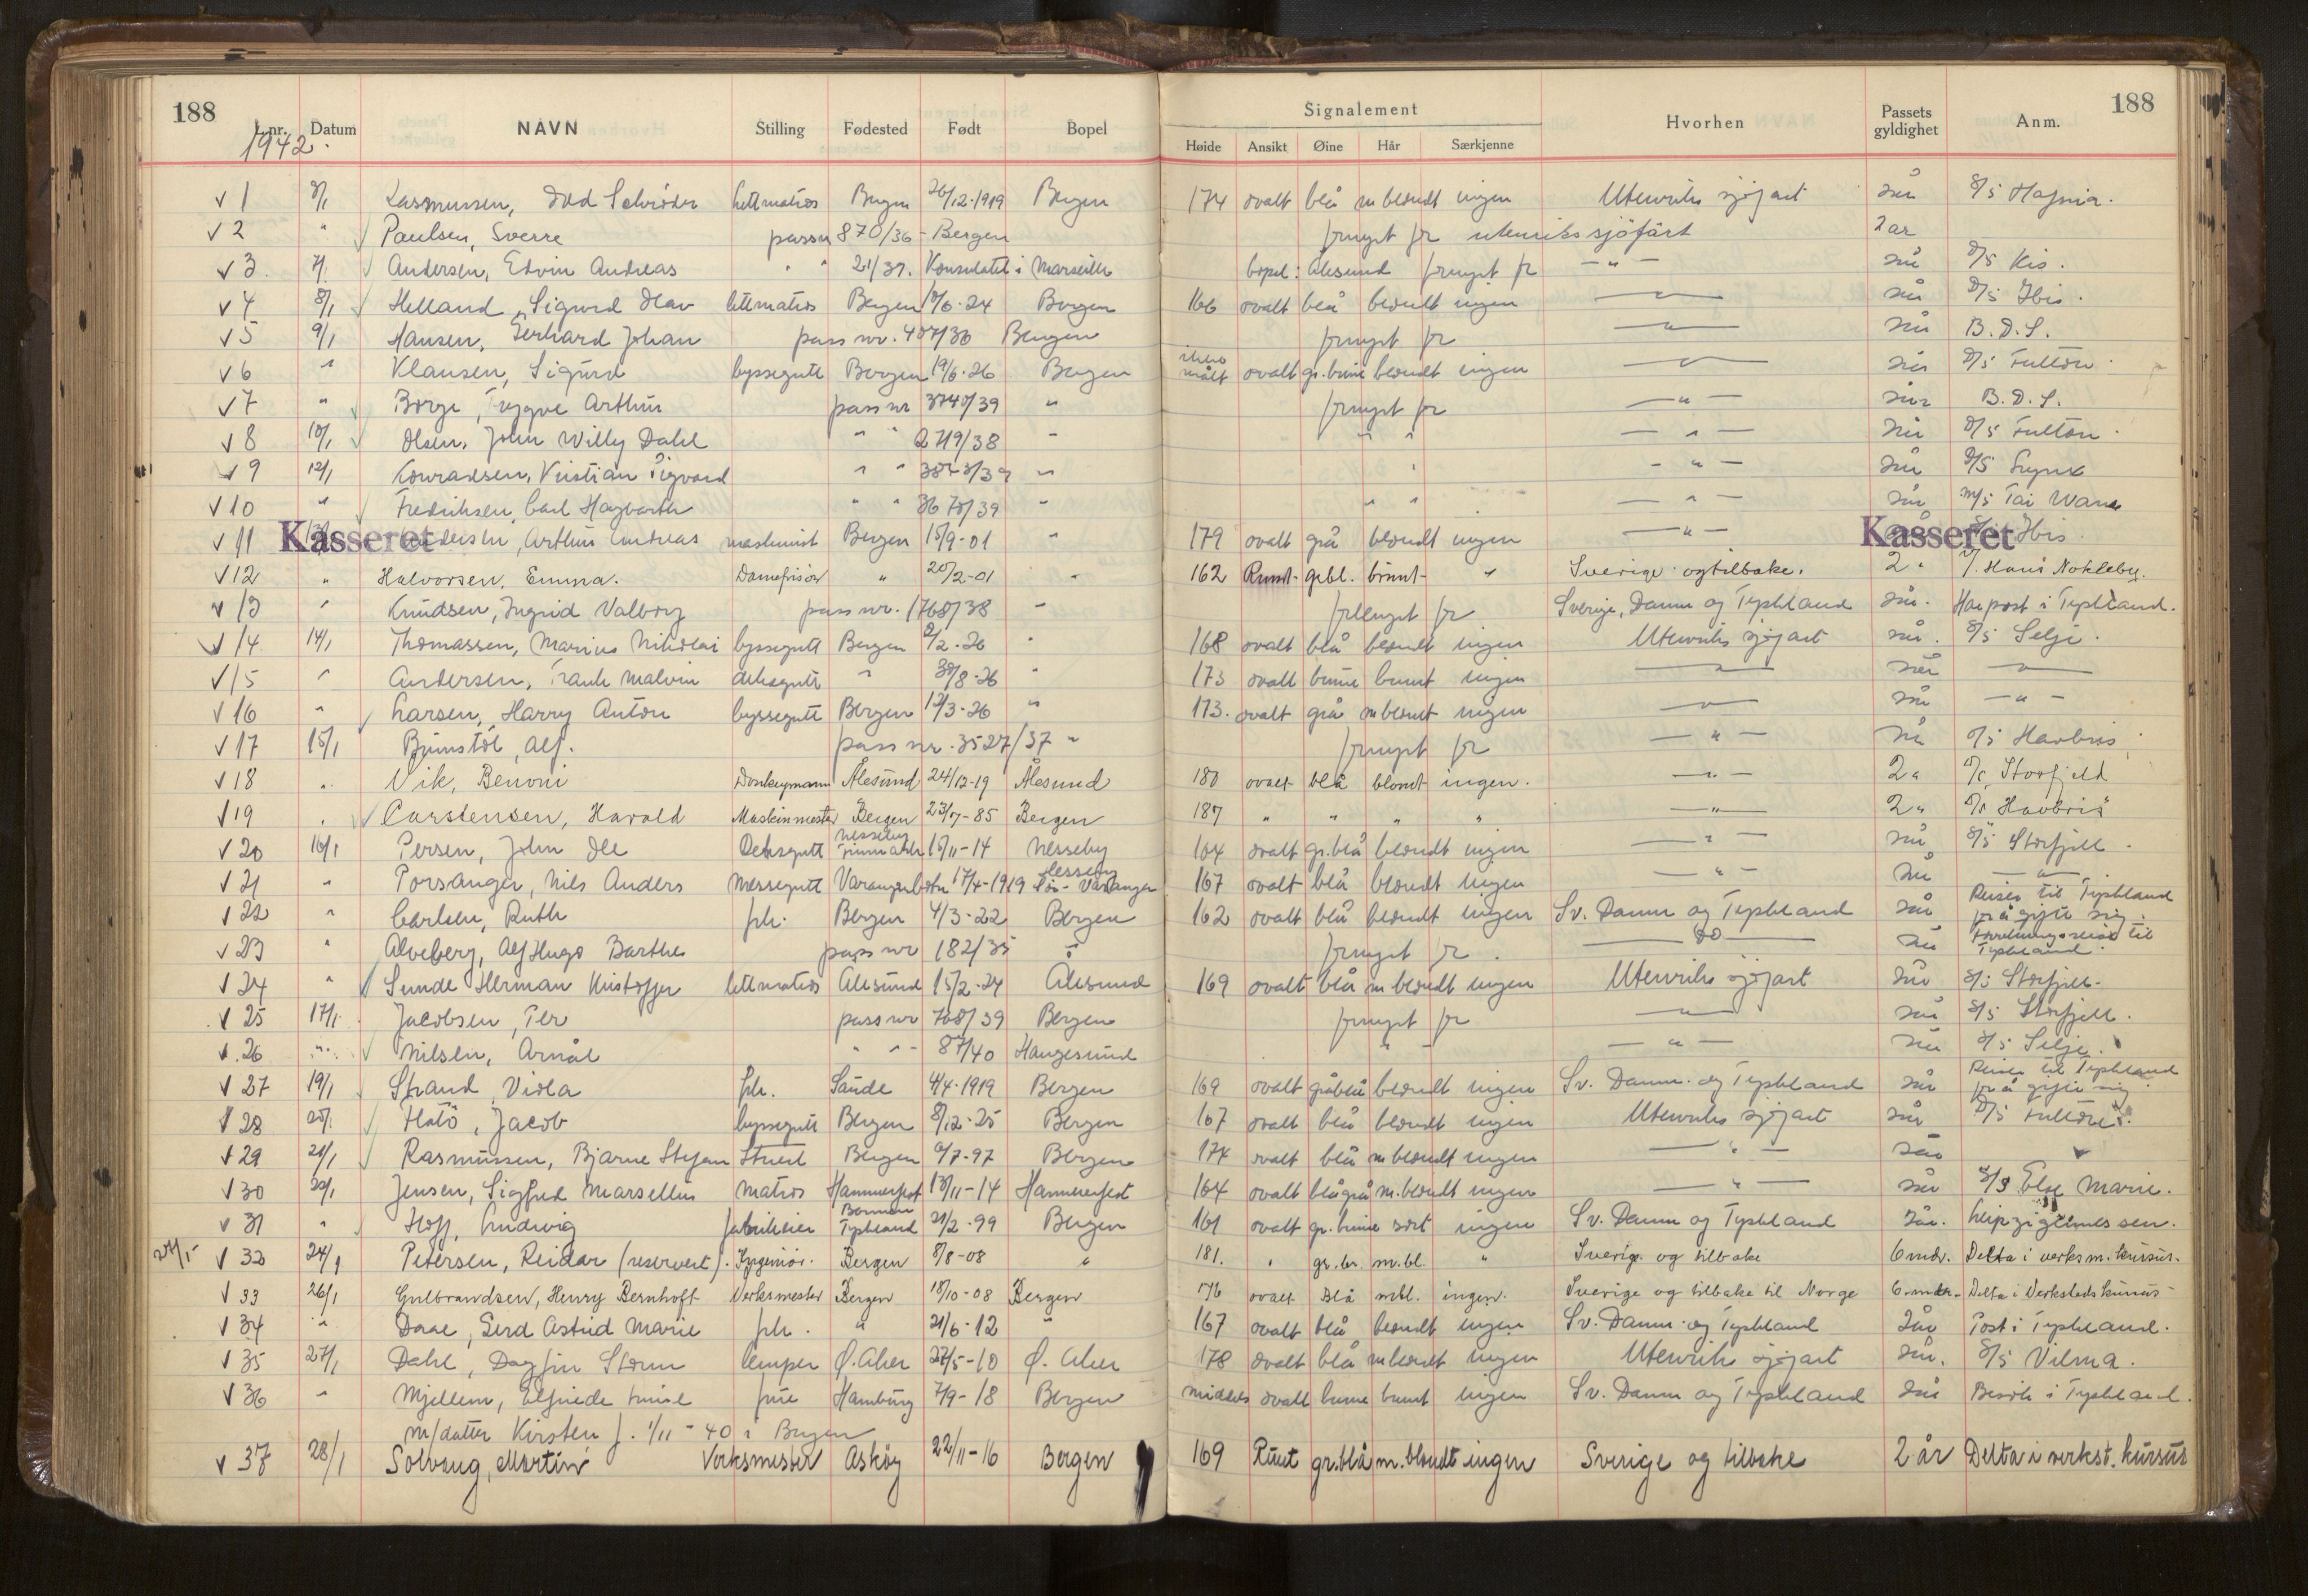 188
188
Signalement
L.nr. Datum NAVN Stilling Fødested Født Bopel Høide Ansikt Øine Hår Særkjenne Hvorhen Passets gyldighet Anm.
1942.
v 1 Rasmussen, Odd lettmatros Bergen 26/12-1919 Bergen 174 ovalt blå m blondt ingen Utenriks sjøfart 2 år D/S Hafnia.
v 2 " Paulsen, Sverre passnr 870/36 - Bergen fornyet for utenriks sjöfart 2 år
v 3. Andersen, Edvin Andreas " " 21/37. Konsulatet i Marseille bopel: Ålesund fornyet for — " — 2 år D/S Kis.
v 4 8/1 Helland, Sigurd Olav lettmatros Bergen 10/6-24 Bergen 166 ovalt blå blondt ingen — " — 2 år D/S Ibis.
v 5 9/1 Hansen, Gerhard Johan pass nr. 407/36 Bergen fornyet for — " — 2 år B.D.S.
v 6 " Klausen, Sigurd byssegutt Bergen 19/6-26 Bergen ikke målt ovalt gr.brune blondt ingen — " — 2 år D/S Fulton
v 7 " Borge, Trygve Arthur pass nr 3740/39 " fornyet for — " — 2 år B.D.S.
v 8 10/1 Olsen, John Willy Dahl " " 2719/38 " " " — " — 2 år D/S Fulton
v 9 12/1 Konradsen, Kristian Sigvard " " " " — " — 2 år D/S
v 10 " Fredriksen, Carl Hagbarth " " 3675/39 " " " — " — 2 år M/S Tai
v 11 Kasseret Andersen, Arthur Andreas maskinist Bergen 15/9-01 " 179 ovalt grå blondt ingen — " — Kasseret D/S Ibis.
v 12 " Halvorsen, Emma. Damefrisør " 20/2-01 " 162 Rundt grbl. brunt " Sverige og tilbake. 2 " Hans Nokleby.
v 13 " Knudsen, Ingrid Valborg pass nr. 1768/38 " fornyet for Sverige, Danm og Tyskland 2 år. Har post i Tyskland.
v 14 14/1 Thomassen, Marius Nikolai byssegutt Bergen 2/2-26 " 168 ovalt blå blondt ingen Utenriks sjøfart 2 år. D/S Selje.
v 15 " Andersen, Frank Malvin dekksgutt " 30/8-26 " 173 ovalt brune brunt ingen — " — 2 år — " —
v 16 " Larsen, Harry Anton byssegutt Bergen 12/3-26 " 173. ovalt grå m blondt ingen — " — 2 år — " —
v 17 15/1 Alf. pass nr. 3527/37 " fornyet for — " — 2 år D/S Havbris
v 18 " Vik, Benoni Donkeymann Ålesund 24/12-19 Ålesund 180 ovalt blå blondt ingen. — " — 2 " D/S Storfjeld
v 19 " Carstensen, Harald Maskinmester Bergen 23/7-85 Bergen 187 " " " " — " — 2 " D/S Havbris
v 20 16/1 Persen, John Ole Dekksgutt Nesseby Finnmark 15/11-14 Nesseby 164 ovalt gr.blå blondt ingen — " — 2 år D/S Storfjell.
v 21 " Porsanger, Nils Anders Messegutt Varangerbotn 17/4-1919 Nesseby Sör-Varanger 167 ovalt blå blondt ingen — " — 2 år — " —
v 22 " Carlsen, Ruth frk. Bergen 4/3-22 Bergen 162 ovalt blå blondt ingen Sv. Danm og Tyskland 2 år Reiser til Tyskland for å gifte sig.
v 23 " Alveberg, Alf Hugo Barthe pass nr 182/35 " fornyet for. — do — 2 år Forretningsreise til Tyskland.
v 24 " Sunde Herman Kristoffer lettmatros Ålesund 15/2-24 Ålesund 169 ovalt blå m blondt ingen Utenriks sjøfart 2 år D/S Storfjell.
v 25 17/1 Jacobsen, Per pass nr 708/39 Bergen fornyet for — " — 2 år D/S Storfjell.
v 26 " Nilsen, Arnål " " 87/40 Haugesund " — " — 2 år D/S Selje.
v 27 19/1 Strand, Viola frk. Sande 4/4-1919 Bergen 169 ovalt gråblå blondt ingen Sv. Danm. og Tyskland 2 år Reiser til Tyskland for å gifte sig
v 28 Flatö, Jacob byssegutt Bergen 8/12-25 Bergen 167 ovalt blå blondt ingen Utenriks sjøfart 2 år D/S Fulton.
v 29 21/1 Rasmussen, Bjarne Stefan Stuert Bergen 9/7-97 Bergen 174 ovalt blå m blondt ingen — " — 2 år "
v 30 22/1 Jensen, Sigfred Marsellus matros Hammerfest 18/11-14 Hammerfest 164 ovalt blågrå m.blondt ingen — " — 2 år D/S Else Marie.
v 31 " Hoff, Ludwig fabrikeier Tyskland 21/2-99 Bergen 161 ovalt gr. brune sort ingen Sv. Danm og Tyskland 2 år. Leipzigermessen.
v 32 24/1 Petersen, Reidar (reservert). Ingeniör. Bergen 8/8-08 " 181. " gr.br. m.bl. " Sverige og tilbake 6 mdr. Delta i verksm. kursus.
v 33 26/1 Gulbrandsen, Henry Bernhoft Verksmester Bergen 18/10-08 Bergen 176 ovalt Blå mbl. ingen. Sverige og tilbake til Norge 6 mdr. Delta i Verkstedskursus
v 34 " Daae, Gerd Astrid Marie frk. " 21/6-12 " 167 ovalt blå blondt ingen Sv. Danm. og Tyskland 2 år Post i Tyskland.
v 35 27/1 Dahl, Dagfin Storm lemper Ø. Aker 22/5-10 Ø. Aker 178 ovalt blå m blondt ingen Utenriks sjøfart 2 år. D/S Vilma.
v 36 " Mjellem, Elfriede fru Hamburg 7/9-18 Bergen middels ovalt brune brunt ingen Sv. Danm og Tyskland 2 år Besök i Tyskland.
m/datter Kirsten f. 1/11-40 i Bergen
v 37 28/1 Solvang, Martin Verksmester Askøy 22/11-16 Bergen 169 Runt gr.blå m.blondt ingen Sverige og tilbake 2 år Delta i verkst. kursus